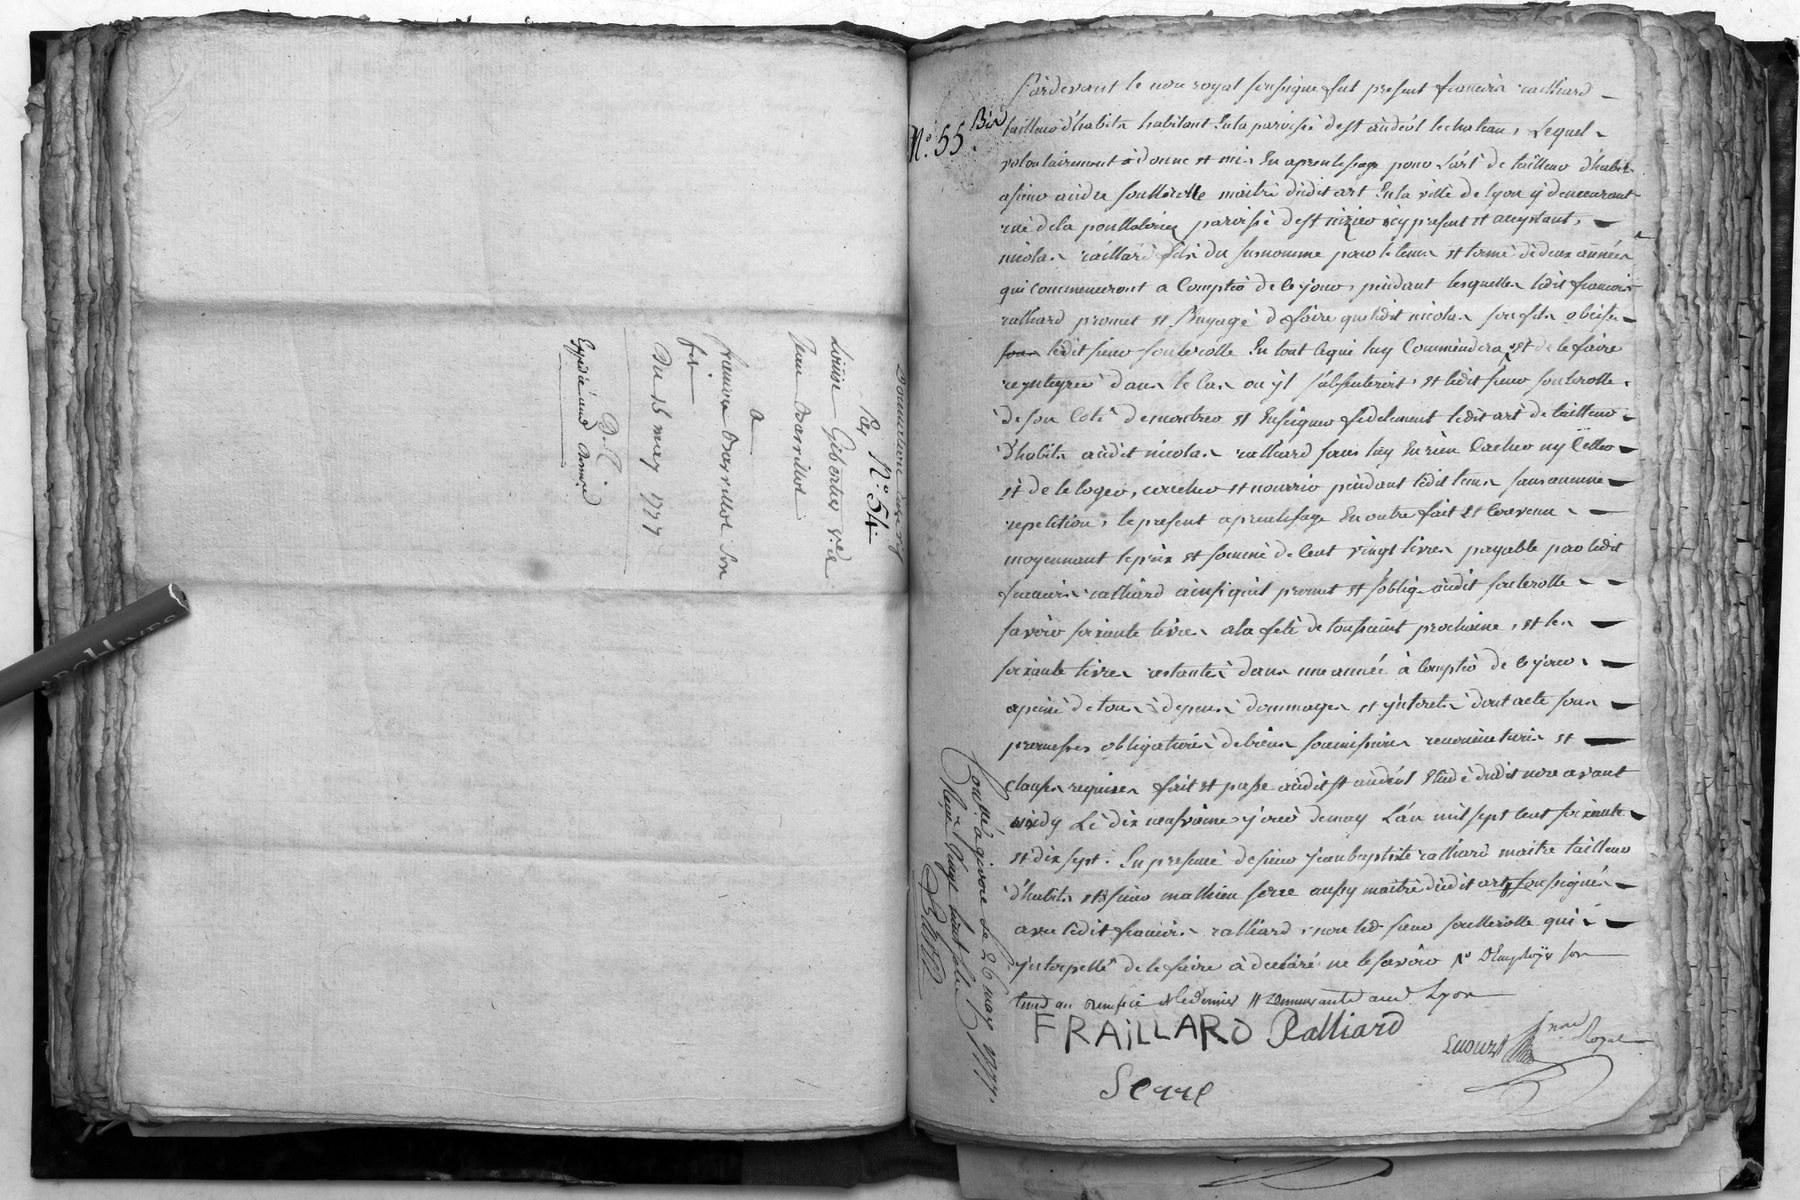 Donnation
Par N.° 54
Louise Gibertier v.e de
Jean Barrillot
a
francois Barrillot son
fils
Du 15 may 1777
D. R.
Expediée aud. Donné
N.° 55 Bis
Pardevant le nore royal soussigné fut present francois ralliard
tailleur d'habits habitant en la paroisse de st andéol le chateau, Lequel
volontairement a donné et mis en aprentissage pour l'art de tailleur d'habits
a sieur andré soullerolle maitre dudit art en la ville de lyon y demeurant
rue de la poullalerie paroisse de st nizier icy present et acceptant,
nicolas ralliard fils du susnommé pour le tems et terme de deux années
qui commenceront a compter de ce jour, pendant lesquelles ledit francois
ralliard promet et s'engage de faire que ledit nicolas son fils obeisse
ledit sieur soulerolle en tout ce qui luy commendera et de le faire
reyntegrer dans le cas ou yl s'absenteroit, et ledit sieur soulerolle
de son coté de montrer et enseigner fidelement ledit art de tailleur
d'habits audit nicolas ralliard sans luy en rien cacher ny celler
et de le loger, coucher et nourrir pendant ledit tems sans aucune
repetition, le present aprentissage en outre fait et convenu
moyennant le prix et somme de cent vingt livres payable par ledit
francois ralliard ainsi quil promet et s'oblige audit soulerolle
savoir soixante livres a la fete de toussaint prochaine, et les
soixante livres restantes dans une année à compter de ce jour
a peine de tous depens dommages et ynterets dont acte sous
promesses obligations de biens soumissions renonciations et
clauses requises fait et passé audit st andéol etude dudit nore avant
midy Le dix neufvieme jour de may L'an mil sept cent soixante
et dix sept. En presence de sieur jean baptiste ralliard maitre tailleur
d'habits et sieur mathieu serre aussy maitre dudit art soussignés
avec ledit francois ralliard, non led. sieur soullerolle qui
ynterpellé de le faire a declaré ne le savoir
aud. Lyon
FRAILLARD Ralliard
nore Royal
Serre
Con.llé a givors le 26 may 1777.